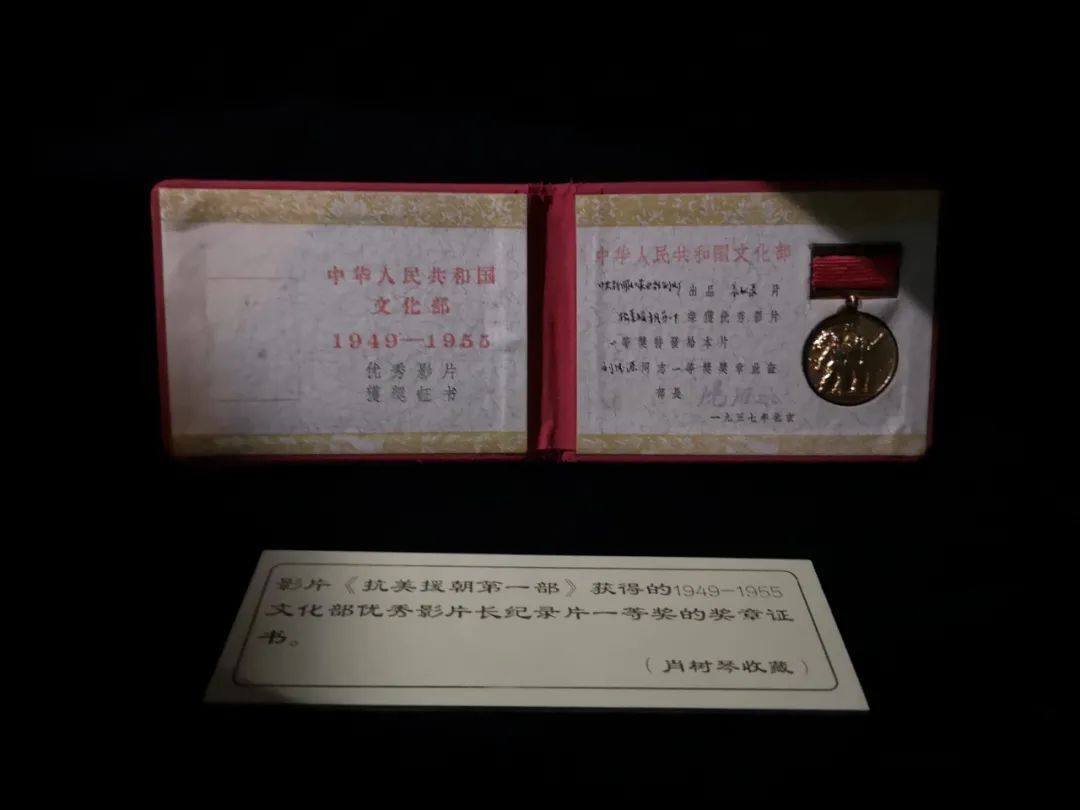 中华人民共和国
文化部
1949—1955
优秀影片
獲奬证书
中华人民共和国文化部
出品 片
荣獲优秀影片
一等獎特發给本片
同志一等獎獎章並
部長
一九五七年北京
影片《抗美援朝第一部》获得的1949-1955
文化部优秀影片长纪录片一等奖的奖章证
书。
（肖树琴收藏）